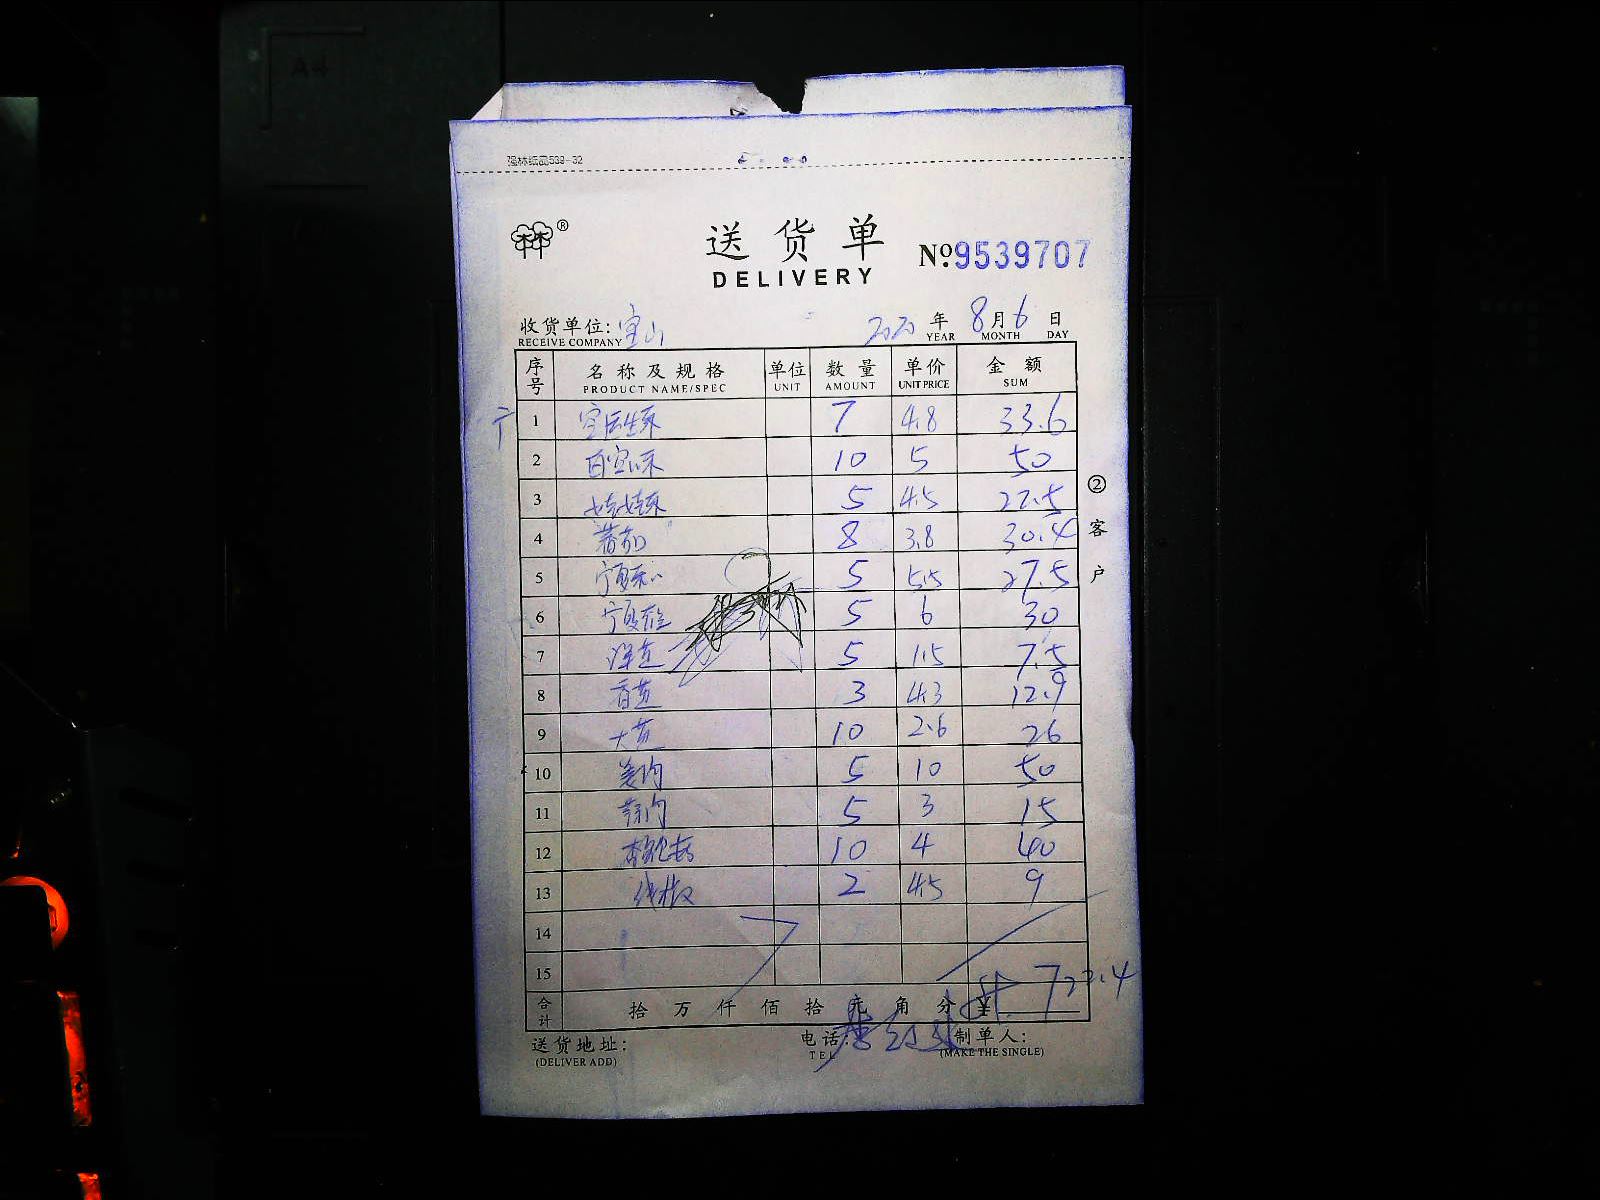 A4
强林纸品539-32
林 ®
送货单
DELIVERY
No.9539707
收货单位: 宝山 2020 年 8 月 6 日
RECEIVE COMPANY YEAR MONTH DAY
序号 名称及规格 单位 数量 单价 金额
PRODUCT NAME/SPEC UNIT AMOUNT UNIT PRICE SUM
1 7 4.8 33.6
2 10 5 50
3 娃娃菜 5 4.5 22.5
4 蕃茄 8 3.8 30.4
5 5 5.5 27.5
6 5 6 30
7 5 1.5 7.5
8 3 4.3 12.9
9 10 2.6 26
10 姜肉 5 10 50
11 蒜肉 5 3 15
12 10 4 40
13 线椒 2 4.5 9
14
15
② 客户
合计 拾 万 仟 佰 拾 元 角 分 ¥ 722.4
送货地址: 电话: 制单人:
(DELIVER ADD) TEL (MAKE THE SINGLE)